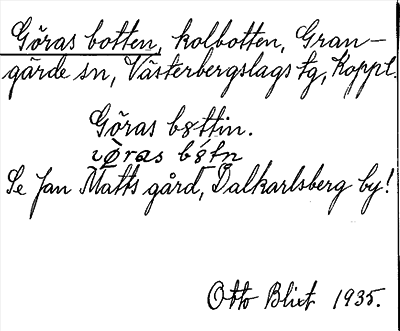 Göras botten, kolbotten, Gran-
gärde sn, Västerbergslags tg, Koppl.
Göras bøttin.
Se Jan Matts gård, Dalkarlsberg by!
Otto Blixt 1935.